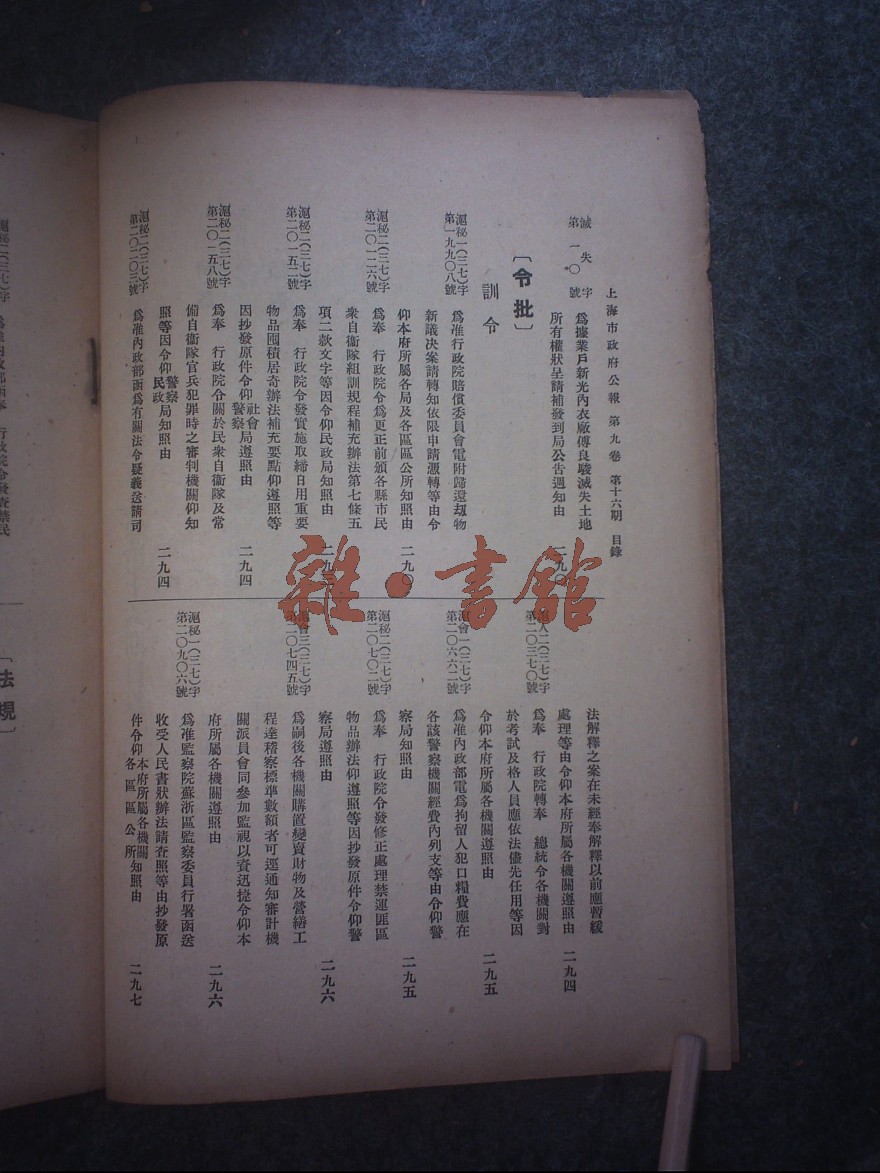 上海市政府公報 第九卷 第十六期 目錄
滅失字
第一〇號
爲據業戶新光內衣廠傅良駿滅失土地
所有權狀呈請補發到局公告週知由
二九〇
〔令批〕
訓令
滬秘一(三七)字
第一九九〇八號
爲准行政院賠償委員會電附歸還刼物
新議决案請轉知依限申請憑轉等由令
仰本府所屬各局及各區區公所知照由
二九〇
滬秘二(三七)字
第二〇一二六號
爲奉 行政院令爲更正前頒各縣市民
衆自衞隊組訓規程補充辦法第七條五
項二款文字等因令仰民政局知照由
二九三
滬秘二(三七)字
第二〇一五二號
爲奉 行政院令發實施取締日用重要
物品囤積居奇辦法補充要點仰遵照等
因抄發原件令仰社會警察局遵照由
二九四
滬秘二(三七)字
第二〇一五八號
爲奉 行政院令關於民衆自衞隊及常
備自衞隊官兵犯罪時之審判機關仰知
照等因令仰警察民政局知照由
二九四
滬秘二(三七)字
第二〇二〇三號
爲准內政部函爲有關法令疑義送請司
法解釋之案在未經奉解釋以前應暫緩
處理等由令仰本府所屬各機關遵照由
二九四
滬人二(三七)字
第二〇三七〇號
爲奉 行政院轉奉 總統令各機關對
於考試及格人員應依法儘先任用等因
令仰本府所屬各機關遵照由
二九五
滬會一(三七)字
第二〇六六二號
爲准內政部電爲拘留人犯口糧費應在
各該警察機關經費內列支等由令仰警
察局知照由
二九五
滬秘二(三七)字
第二〇七〇二號
爲奉 行政院令發修正處理禁運匪區
物品辦法仰遵照等因抄發原件令仰警
察局遵照由
二九六
滬會三(三七)字
第二〇七四五號
爲嗣後各機關購置變賣財物及營繕工
程達稽察標準數額者可逕通知審計機
關派員會同參加監視以資迅捷令仰本
府所屬各機關遵照由
二九六
滬秘一(三七)字
第二〇九〇六號
爲准監察院蘇浙區監察委員行署函送
收受人民書狀辦法請查照等由抄發原
件令仰本府所屬各機關各區區公所知照由
二九七
〔法規〕
雜·書館